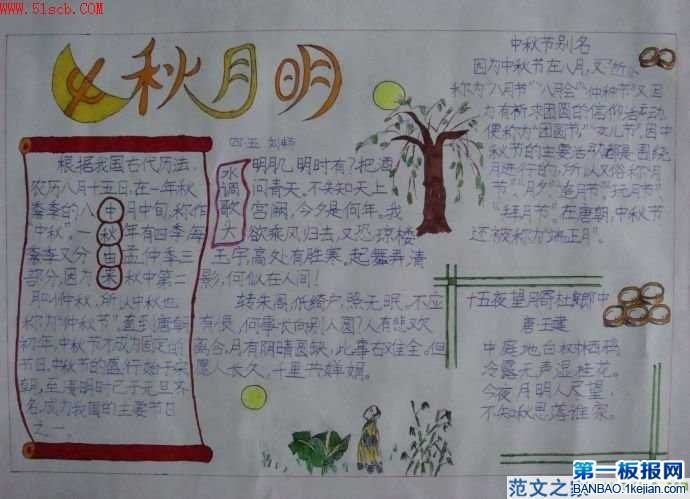 www.51scb.com
中秋月明
四.五 刘畅
根据我国古代历法,
农历八月十五日,在一年秋
季的八月中旬,称作
"中秋"。一年有四季,每
季又分孟、仲、季三
部分,因为秋中第二
月叫仲秋,所以中秋也
称为"仲秋节"。直到唐朝
初年,中秋节才成为固定的
节日。中秋节的盛行始于宋
朝,至明时已于元旦齐
名,成为我国的主要节日
之一。
中秋由来
水调歌头
明月几时有?把酒
问青天。不知天上
宫阙,今夕是何年。我
欲乘风归去,又恐琼楼
玉宇,高处有胜寒。起舞弄清
影,何似在人间!
转朱阁,低绮户,照无眠。不应
有恨,何事长向别人圆?人有悲欢
离合,月有阴晴圆缺,此事古难全。但
愿人长久,千里共婵娟。
中秋节别名
因为中秋节在八月,又所以
称为"八月节""八月会""仲秋节"又因
为有祈求团圆的信仰活动,
便称为"团圆节""女儿节"。因中
秋节的主要活动都是围绕
月进行的,所以又俗称"月
节""月夕""追月节""玩月节"、
"拜月节"。在唐朝,中秋节
还被称为"端正月"。
十五夜望月寄杜郎中
唐王建
中庭地白树栖鸦,
冷露无声湿桂花。
今夜月明人尽望,
不知秋思落谁家。
范文之家
第一板报网
BANBAO.1kejian.com